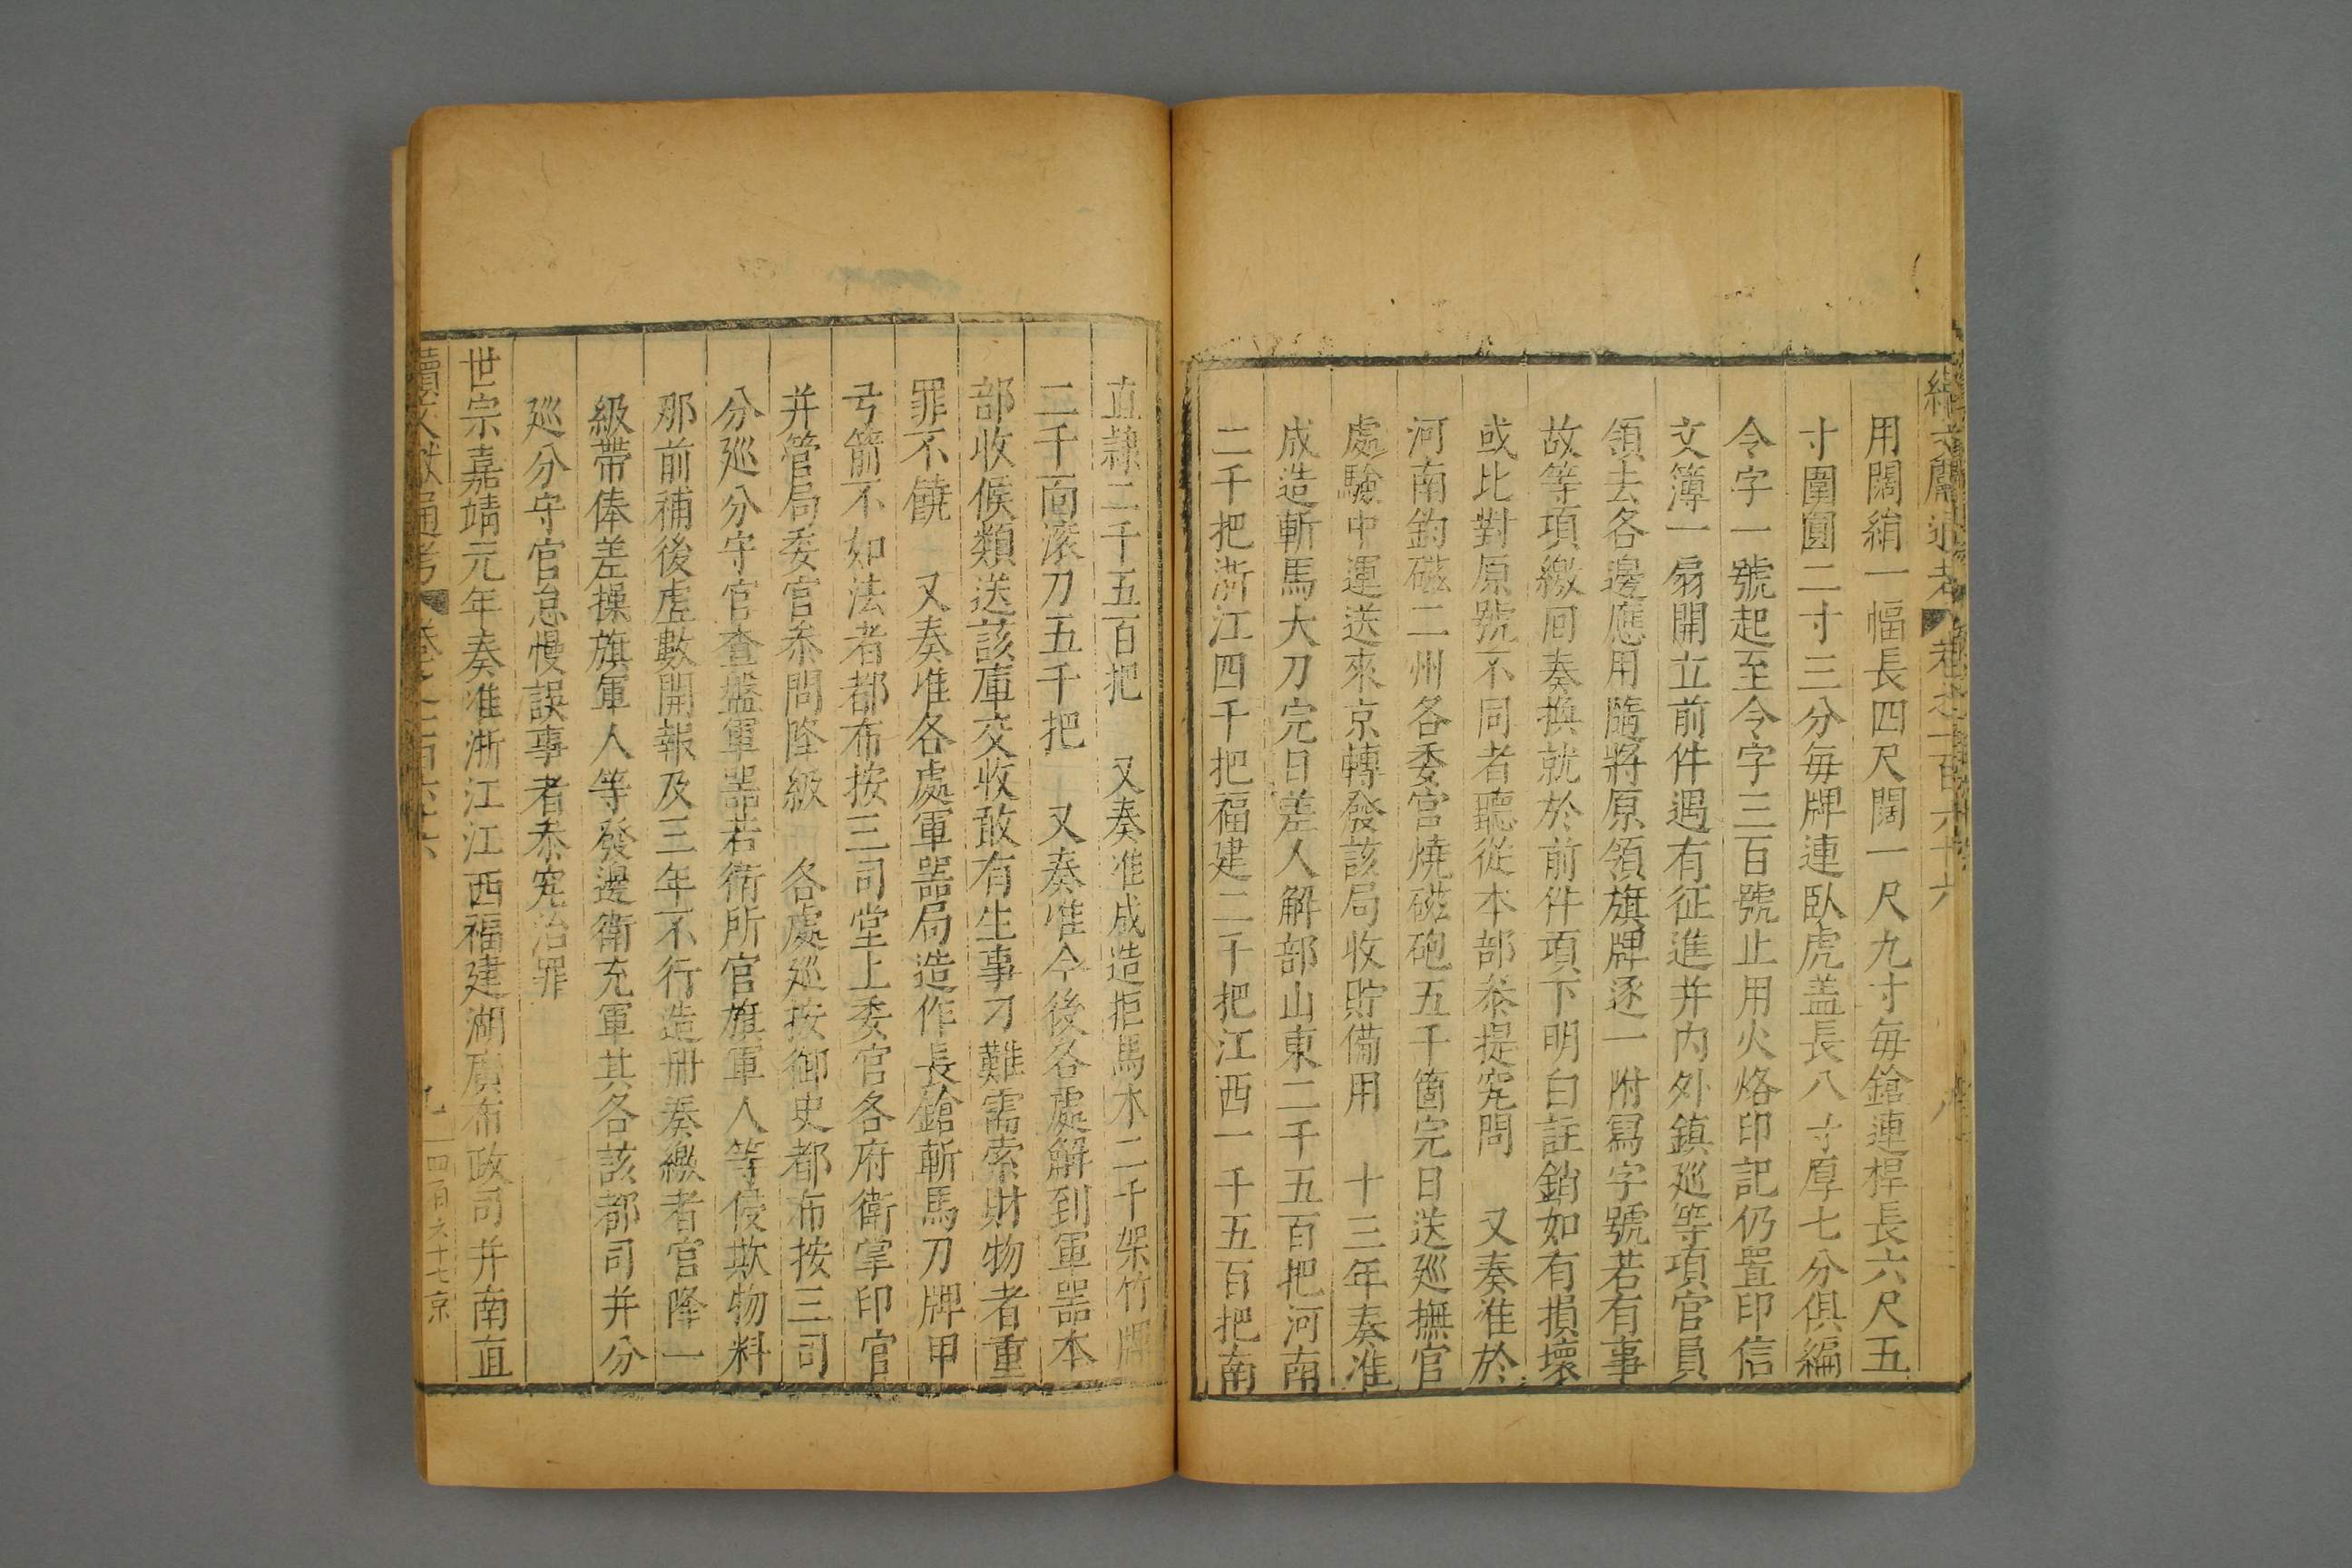 續文獻通考 卷之一百六十六 八
用闊絹一幅長四尺闊一尺九寸每鎗連桿長六尺五
寸圍圓二寸三分每牌連臥虎盖長八寸厚七分俱編
令字一號起至令字三百號止用火烙印記仍置印信
文簿一扇開立前件遇有征進并内外鎮廵等項官員
領去各邊應用隨將原領旗牌逐一附寫字號若有事
故等項繳囘奏換就於前件項下明白註銷如有損壞
或比對原號不同者聽從本部叅提究問 又奏准於
河南鈞磁二州各委官燒磁砲五千箇完日送廵撫官
處驗中運送來京轉發該局收貯備用 十三年奏准
成造斬馬大刀完日差人解部山東二千五百把河南
二千把浙江四千把福建二千把江西一千五百把南
直隷二千五百把 又奏准成造拒馬木二千架竹牌
二千面滚刀五千把 又奏准今後各處解到軍器本
部收候類送該庫交收敢有生事刁難需索財物者重
罪不饒 又奏准各處軍器局造作長鎗斬馬刀牌甲
弓箭不如法者都布按三司堂上委官各府衛掌印官
并管局委官叅問降級 各處廵按御史都布按三司
分廵分守官查盤軍器若衛所官旗軍人等侵欺物料
那前補後虛數開報及三年不行造册奏繳者官降一
級帶俸差操旗軍人等發邊衛充軍其各該都司并分
廵分守官怠慢誤事者叅究治罪
世宗嘉靖元年奏准浙江江西福建湖廣布政司并南直
續文獻通考 卷之一百六十六 九 一四百六十七京